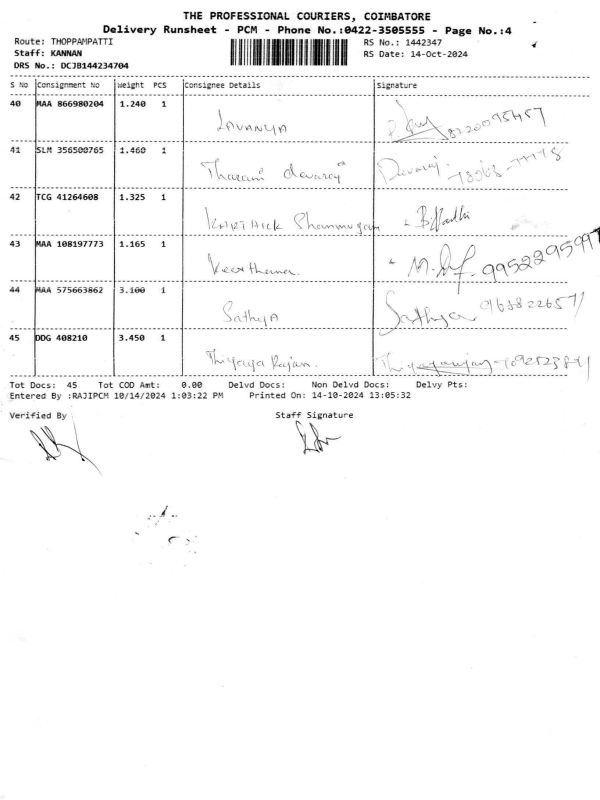 THE PROFESSIONAL COURIERS, COIMBATORE
Delivery Runsheet - PCM - Phone No.:0422-3505555 - Page No.:4
Route: THOPPAMPATTI RS No.: 1442347
Staff: KANNAN RS Date: 14-Oct-2024
DRS No.: DCJB144234704
S No Consignment No Weight PCS Consignee Details Signature
40 MAA 866980204 1.240 1
LAVANYA 8220095457
41 SLM 356500765 1.460 1
Tharani devaraj Devaraj
42 TCG 41264608 1.325 1
KARTHICK Shanmugam
43 MAA 108197773 1.165 1
Keerthana 9952295997
44 MAA 575663862 3.100 1
SathyA Sathya 9638226571
45 DDG 408210 3.450 1
Thiyaga Rajan.
Tot Docs: 45 Tot COD Amt: 0.00 Delvd Docs: Non Delvd Docs: Delvy Pts:
Entered By :RAJIPCM 10/14/2024 1:03:22 PM Printed On: 14-10-2024 13:05:32
Verified By Staff Signature